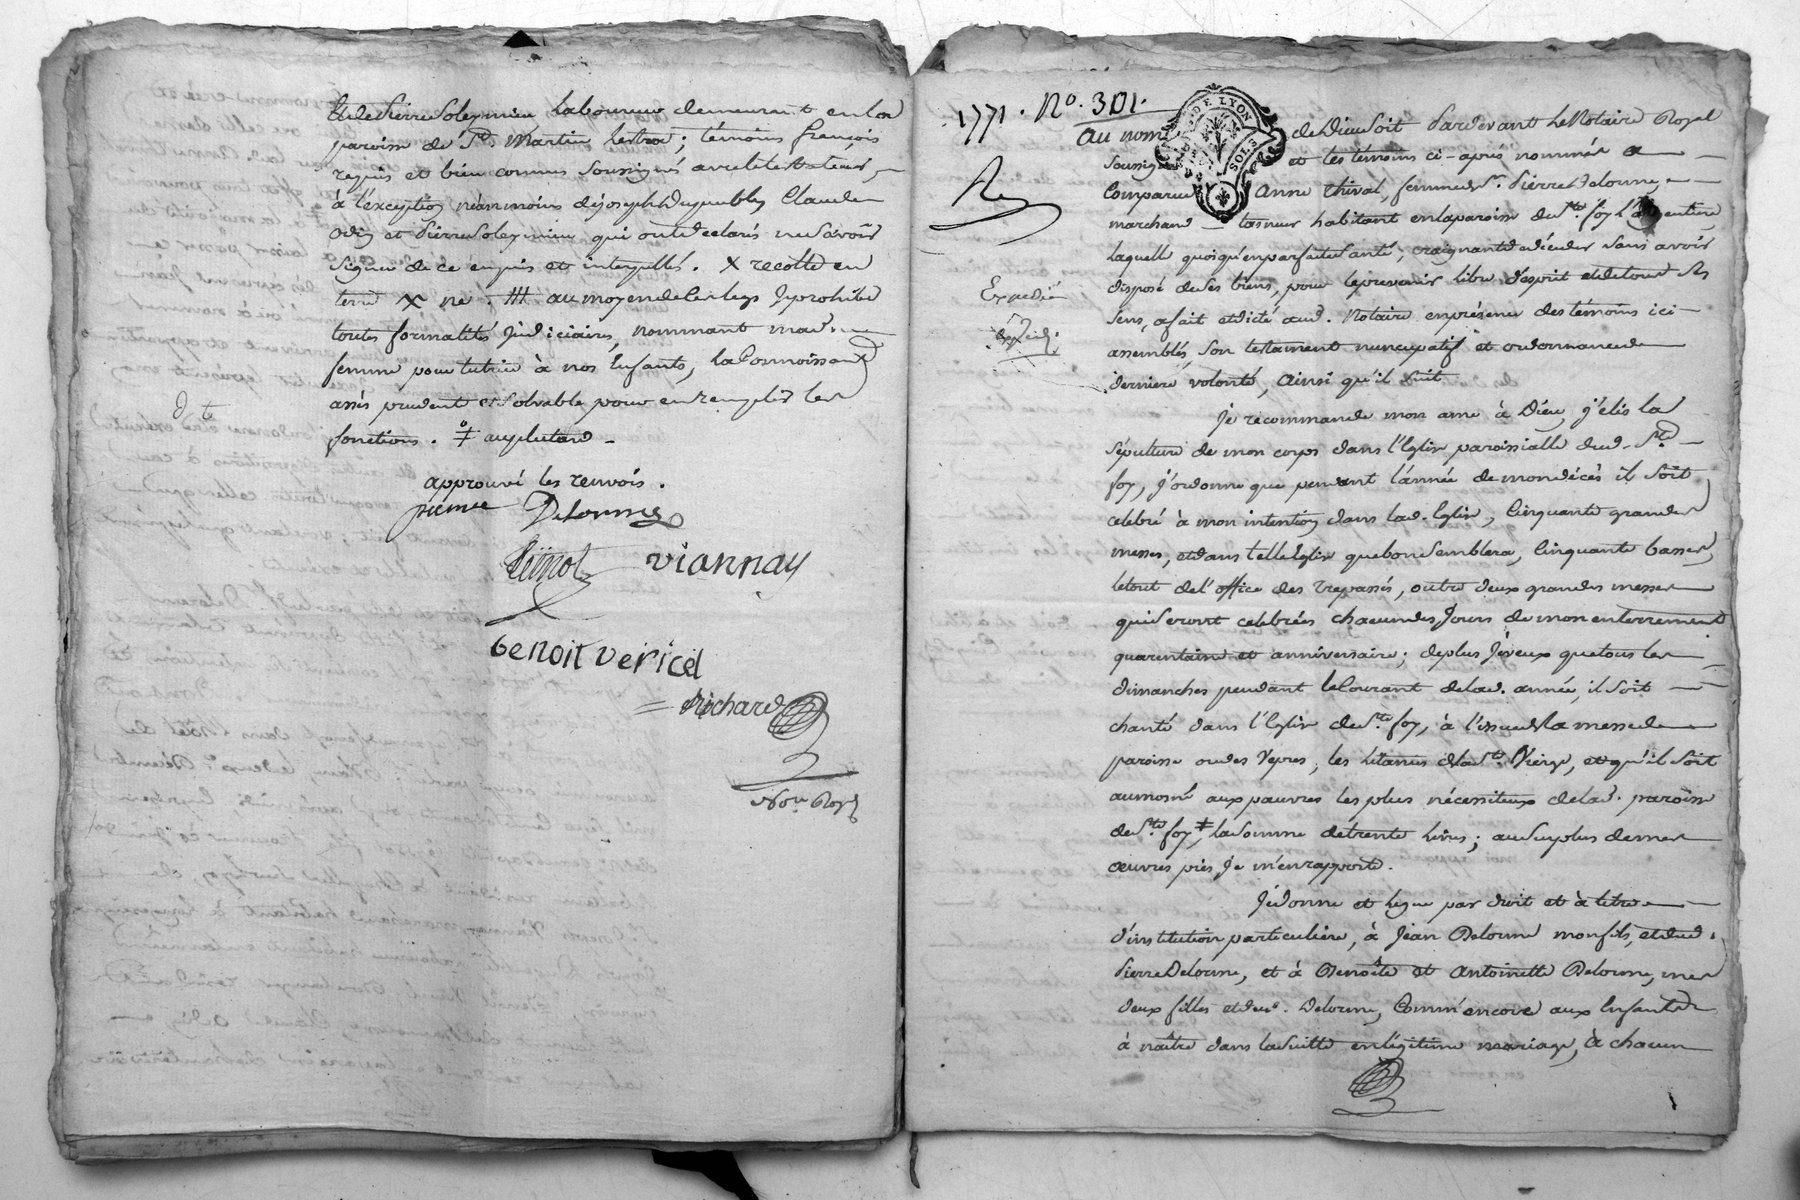 et de Pierre Soleymieu laboureur demeurant en lad
paroisse de St. Martin Lestra ; témoins françois
requis et bien connus soussignés avec le testateur
à l'exception néanmoins de joseph Claude
Odin et Pierre Soleymieu qui ont declarés ne Savoir
Signer de ce enquis et interpellés. X recolte en
terre X ne . /// au moyen de ce legs Je prohibe
toutes formalités Judiciaires, nommant mad.
femme pour tutrice à nos Enfants, la Connoissant
assés prudente et Solvable pour en remplir les
fonctions. ‡ au plutard
approuvé les renvois.
pierre Delorme
viannay
benoit vericel
Richard
Nore Royal
1771. No. 301.
GEN. DE LYON
SOLS
Expedié
Expedié
au nom de Dieu Soit Pardevant Le Notaire Royal
Soussigné et les témoins ci-après nommés a
Comparue Anne Thival, femme de Sr. Pierre Delorme,
marchand tanneur habitant en la paroisse de Ste. foy l'argentiere
laquelle quoiqu'en parfaite santé, craignant de décéder sans avoir
disposé de Ses biens, pour le prevenir libre d'esprit et de tous Ses
Sens, a fait et dicté aud. Notaire en présence des témoins ici
assemblés, Son testament nuncupatif et ordonnance de
derniere volonté, ainsi qu'il Suit
Je recommande mon ame à Dieu, j'élis la
Sépulture de mon corps dans l'Eglise paroissialle dud. Ste.
foy, j'ordonne que pendant l'année de mon décès il Soit
celebré à mon intention dans lad. Eglise, Cinquante grandes
messes, et dans telle Eglise que bon Semblera, Cinquante basses,
le tout de l'office des trepassés, outre deux grandes messes
qui Seront celebrées chacun des Jours de mon enterrement
quarentaine et anniversaire ; de plus Je veux que tous les
dimanches pendant le Courant de lad. année, il Soit
chanté dans l'Eglise de Ste. foy, à l'issue de la messe de
paroisse ou des Vepres, les litanies de la Ste. Vierge, et qu'il Soit
aumosné aux pauvres les plus nécessiteux de lad. paroisse
de Ste. foy, ‡ la Somme de trente livres ; au Surplus de mes
œuvres pies, Je m'en rapporte.
Je donne et legue par droit et à titre
d'institution particuliere, à Jean Delorme mon fils, et dud.
Pierre Delorme, et à Benoîte et Antoinette Delorme, mes
deux filles et dud. Delorme, Comm'encore aux Enfants
à naître dans la Suitte en légitime mariage, à chacun